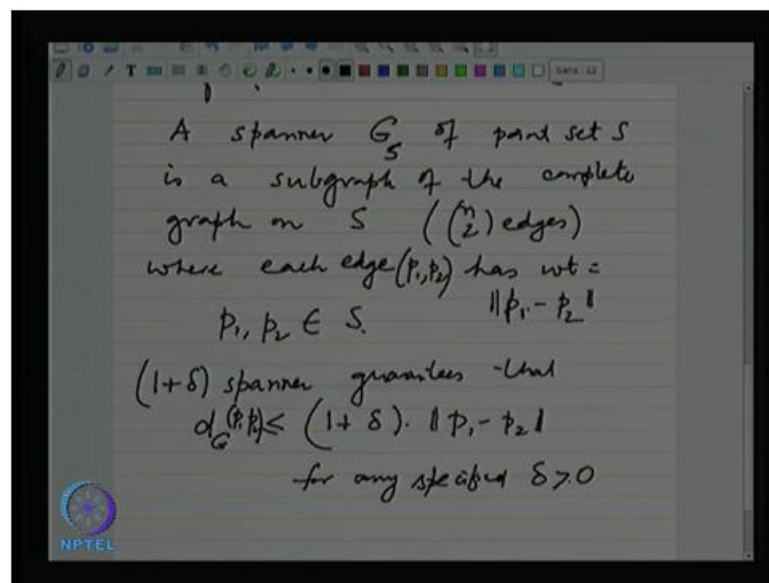 Sans 12
A spanner G_S of point set S
is a subgraph of the complete
graph on S ((n 2) edges)
where each edge (p₁,p₂) has wt =
p₁, p₂ ∈ S. ||p₁ - p₂||
(1+δ) spanner guarantees that
d_G(p₁,p₂) ≤ (1+δ). ||p₁ - p₂||
for any specified δ>0
NPTEL